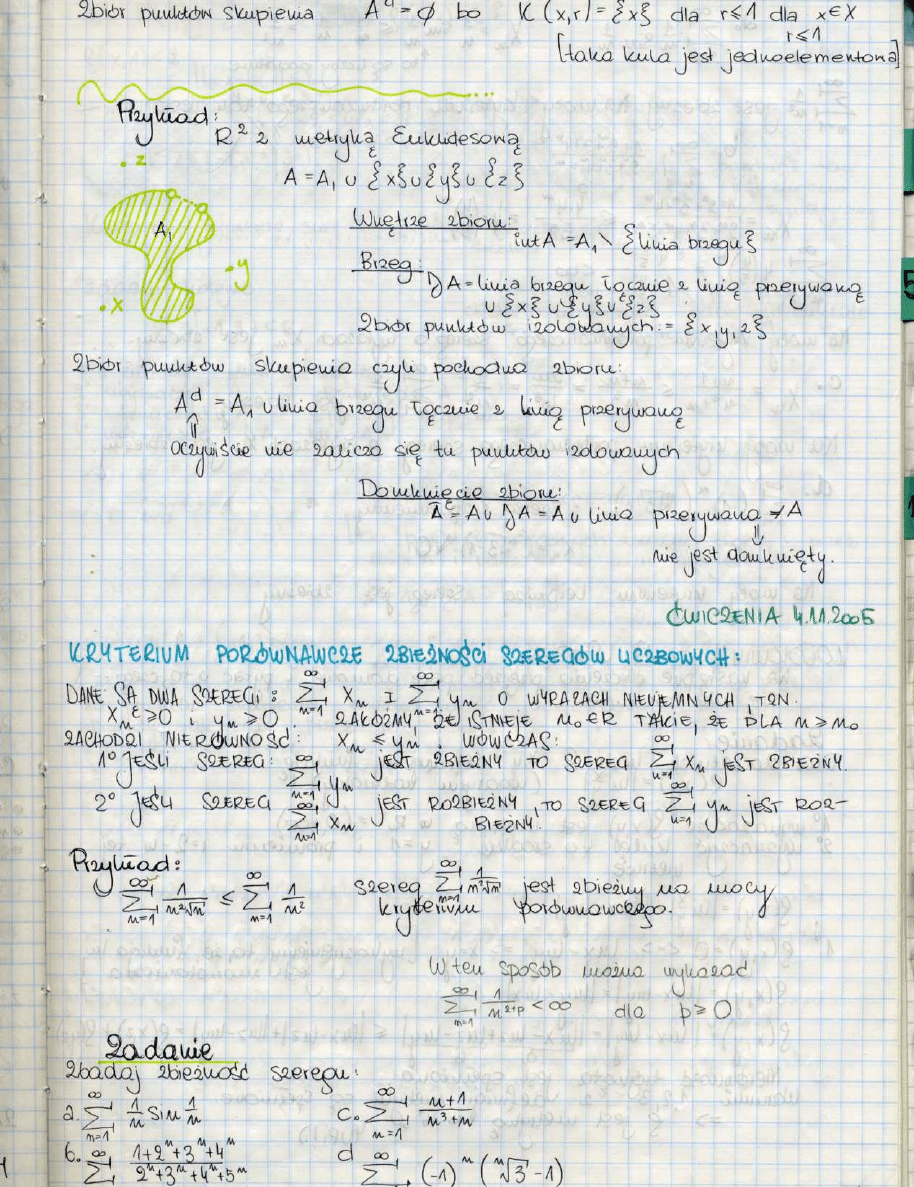 zbiór punktów skupienia A^d = ∅ bo K(x,r) = {x} dla r≤1 dla x∈X
r≤1
[taka kula jest jednoelementowa]
Przykład:
R² z metryką Euklidesową
. z
A = A₁ ∪ {x}∪{y}∪{z}
A₁
Wnętrze zbioru:
int A = A₁ \ {linia brzegu}
Brzeg:
. y
∂A = linia brzegu łącznie z linią przerywaną
∪ {x} ∪ {y} ∪ {z}
. x
zbiór punktów izolowanych: = {x, y, z}
zbiór punktów skupienia czyli pochodna zbioru:
A^d = A₁ ∪ linia brzegu łącznie z linią przerywaną
⇑
oczywiście nie zalicza się tu punktów izolowanych
Domknięcie zbioru:
Ā = A ∪ ∂A = A ∪ linia przerywana ≠ A
⇓
nie jest domknięty.
ĆWICZENIA 4.11.2005
KRYTERIUM PORÓWNAWCZE ZBIEŻNOŚCI SZEREGÓW LICZBOWYCH:
DANE SĄ DWA SZEREGI: ∑_{n=1}^{∞} xₙ I ∑_{n=1}^{∞} yₙ O WYRAZACH NIEUJEMNYCH, TZN.
xₙ ≥ 0 i yₙ ≥ 0, ZAŁÓŻMY, ŻE ISTNIEJE n₀ ∈ R TAKIE, ŻE DLA n ≥ n₀
ZACHODZI NIERÓWNOŚĆ: xₙ ≤ yₙ. WÓWCZAS:
1° JEŚLI SZEREG: ∑_{n=1}^{∞} yₙ JEST ZBIEŻNY TO SZEREG ∑_{n=1}^{∞} xₙ JEST ZBIEŻNY.
2° JEŚLI SZEREG ∑_{n=1}^{∞} xₙ JEST ROZBIEŻNY, TO SZEREG ∑_{n=1}^{∞} yₙ JEST ROZ-
BIEŻNY.
Przykład:
∑_{n=1}^{∞} 1/(n²√n) ≤ ∑_{n=1}^{∞} 1/n² szereg ∑_{n=1}^{∞} 1/(n²√n) jest zbieżny na mocy
kryterium porównawczego.
W ten sposób można wykazać
∑_{n=1}^{∞} 1/n^{2+p} < ∞ dla p ≥ 0
Zadanie
Zbadaj zbieżność szeregu:
a. ∑_{n=1}^{∞} 1/n sin 1/n c. ∑_{n=1}^{∞} (n+1)/(n³+n)
b. ∑^{∞} (1+2ⁿ+3ⁿ+4ⁿ)/(2ⁿ+3ⁿ+4ⁿ+5ⁿ) d ∑^{∞} (-1)ⁿ (ⁿ√3 - 1)